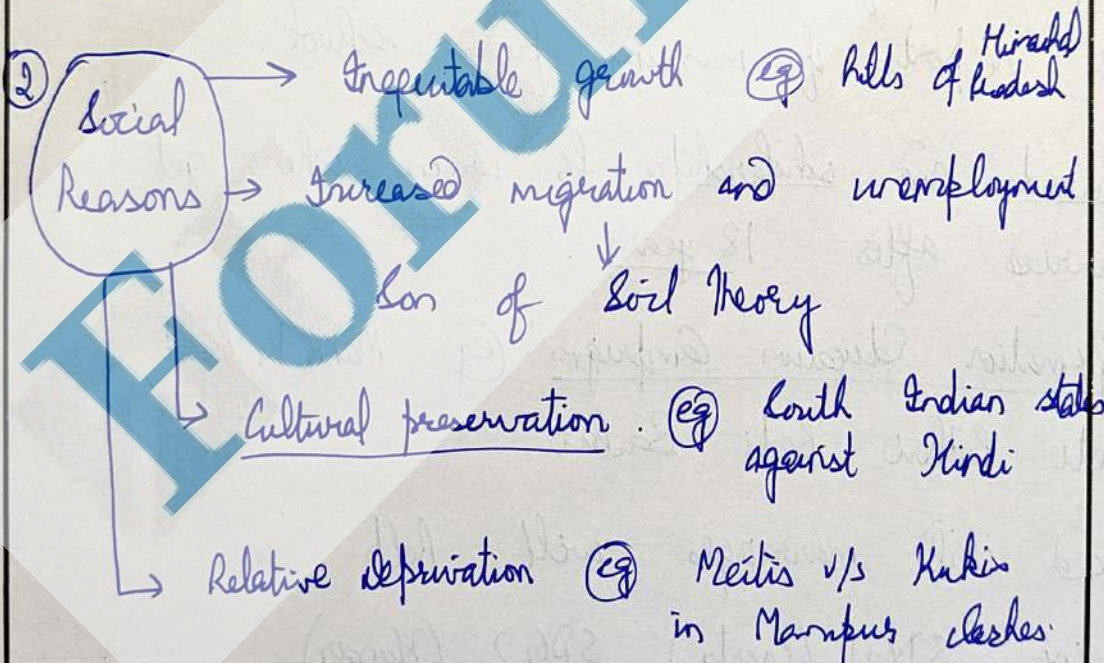 ②
Social
Reasons
→ Inequitable growth eg hills of Himachal
Pradesh
→ Increased migration and unemployment
↓
Son of Soil Theory
→ Cultural preservation. eg South Indian states
against Hindi
→ Relative deprivation eg Meitis v/s Kukis
in Manipur clashes.
Forum